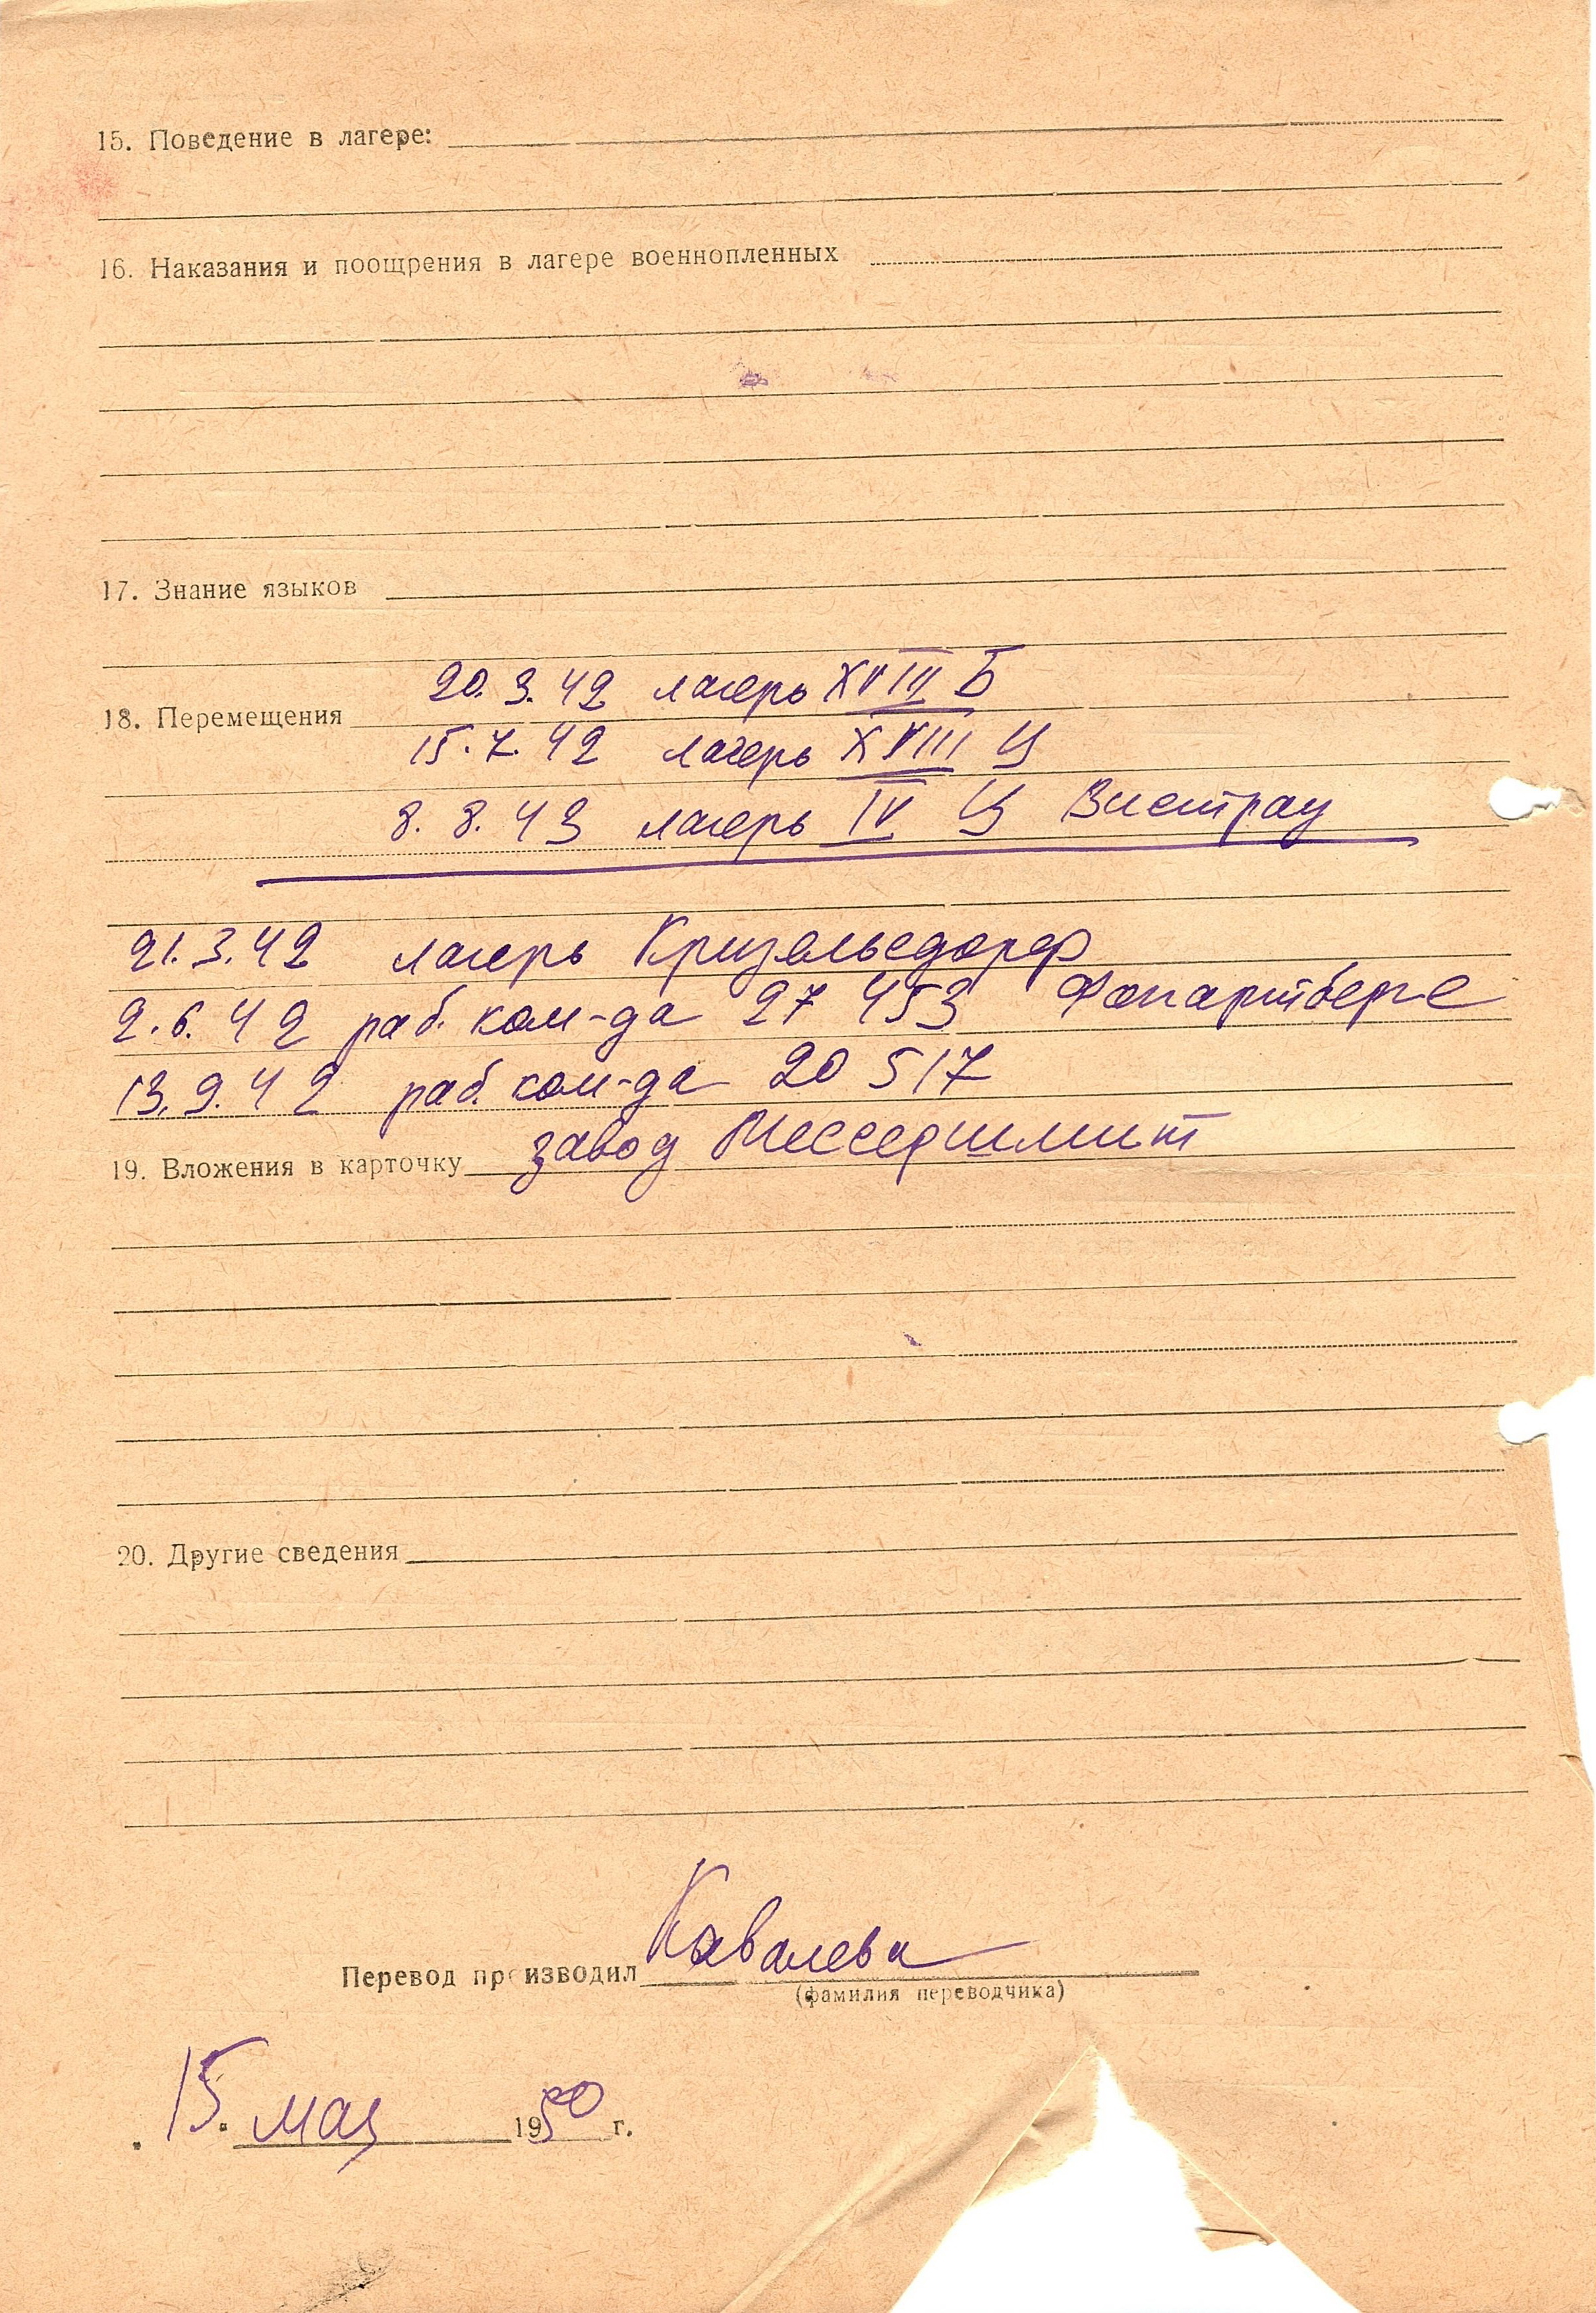 15. Поведение в лагере:
16. Наказания и поощрения в лагере военнопленных
17. Знание языков
20. 3. 42 лагерь XVIII Б
18. Перемещения
15. 7. 42 лагерь XVIII Ц
8. 8. 43 лагерь IV Ц Вистрау
21. 3. 42 лагерь Кризельсдорф
2. 6. 42 раб. ком-да 27 453
13. 9. 42 раб. ком-да 20 517
завод Мессершмит
19. Вложения в карточку
20. Другие сведения
Перевод производил Кавалева
(фамилия переводчика)
15. мая 1950 г.